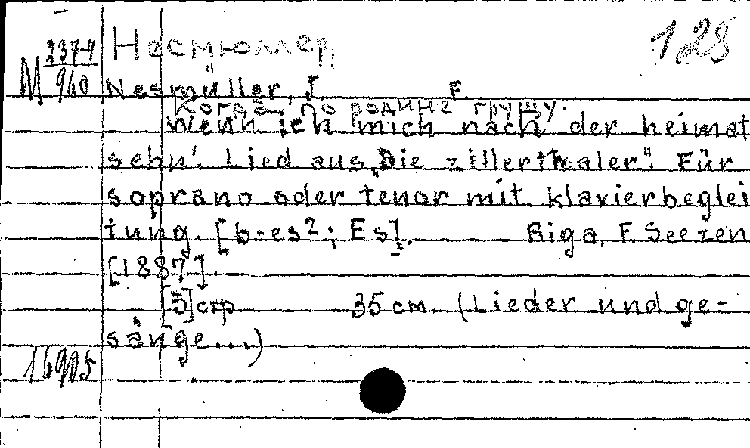 128
М 237-4/960
Несмюллер,
Nesmüller, J. F.
Когда по родине грущу.
Wenn ich mich nach der heimat
sehn'. Lied aus „Die zillerthaler". Für
soprano oder tenor mit klavierbeglei
tung. [b-es²; Es]. Riga, F. Seezen
[1887].
[3] стр 35 см. (Lieder und ge-
sänge...)
16905